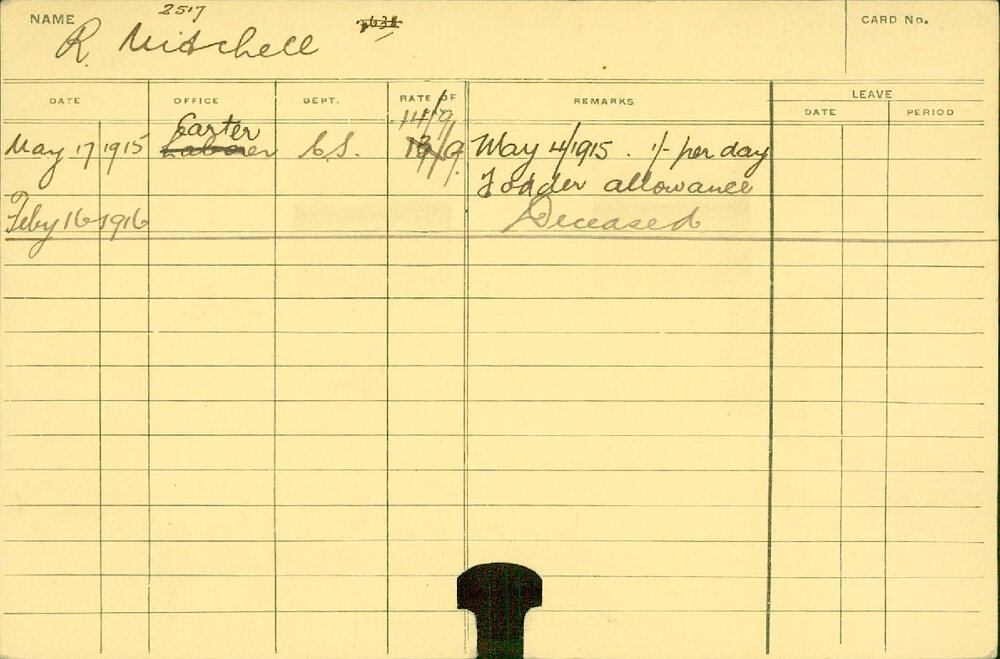 NAME 2517
R. Mitchell
CARD No.
DATE OFFICE DEPT. RATE OF REMARKS LEAVE
DATE PERIOD
14/9
Carter
May 17 1915 Laborer C.S. 13/9 May 4/1915. 1/- per day
Fodder allowance
Feby 16 1916 Deceased